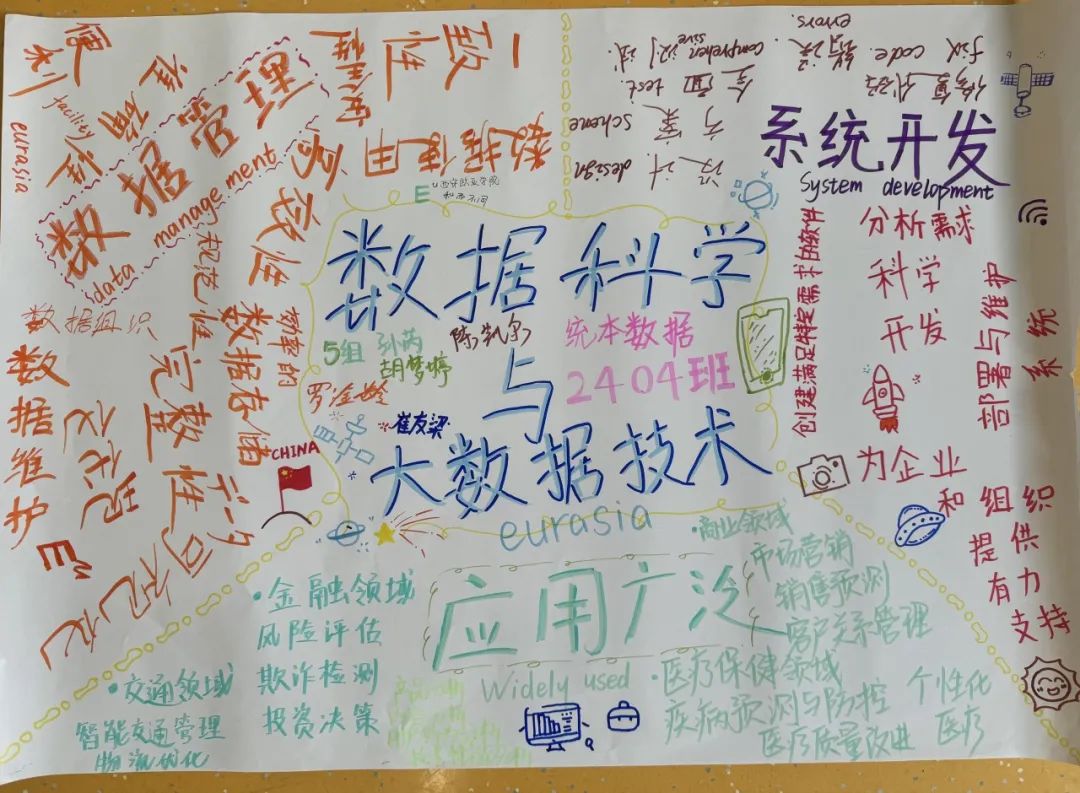 数据科学
与
大数据技术
eurasia
5组
孙芮
胡梦婷
罗淦龄
崔友梁
统本数据
2404班
E
数据管理
data management
准确性
便利性
facility
eurasia
安全性
一致性
数据使用
高效性
规范性
数据组织
数据存储
数据维护
完整性
可视化
CHINA
E
系统开发
System development
设计 design
方案 scheme
全面 test
comprehensive 测试
修复代码
fix code
错误
errors.
分析需求
科学
开发
创建满足特定需求的软件
部署与维护
系统
为企业
和组织
提供
有力
支持
应用广泛
Widely used
·金融领域
风险评估
欺诈检测
投资决策
·交通领域
智能交通管理
物流优化
·商业领域
市场营销
销售预测
客户关系管理
·医疗保健领域
疾病预测与防控
个性化
医疗
医疗质量改进